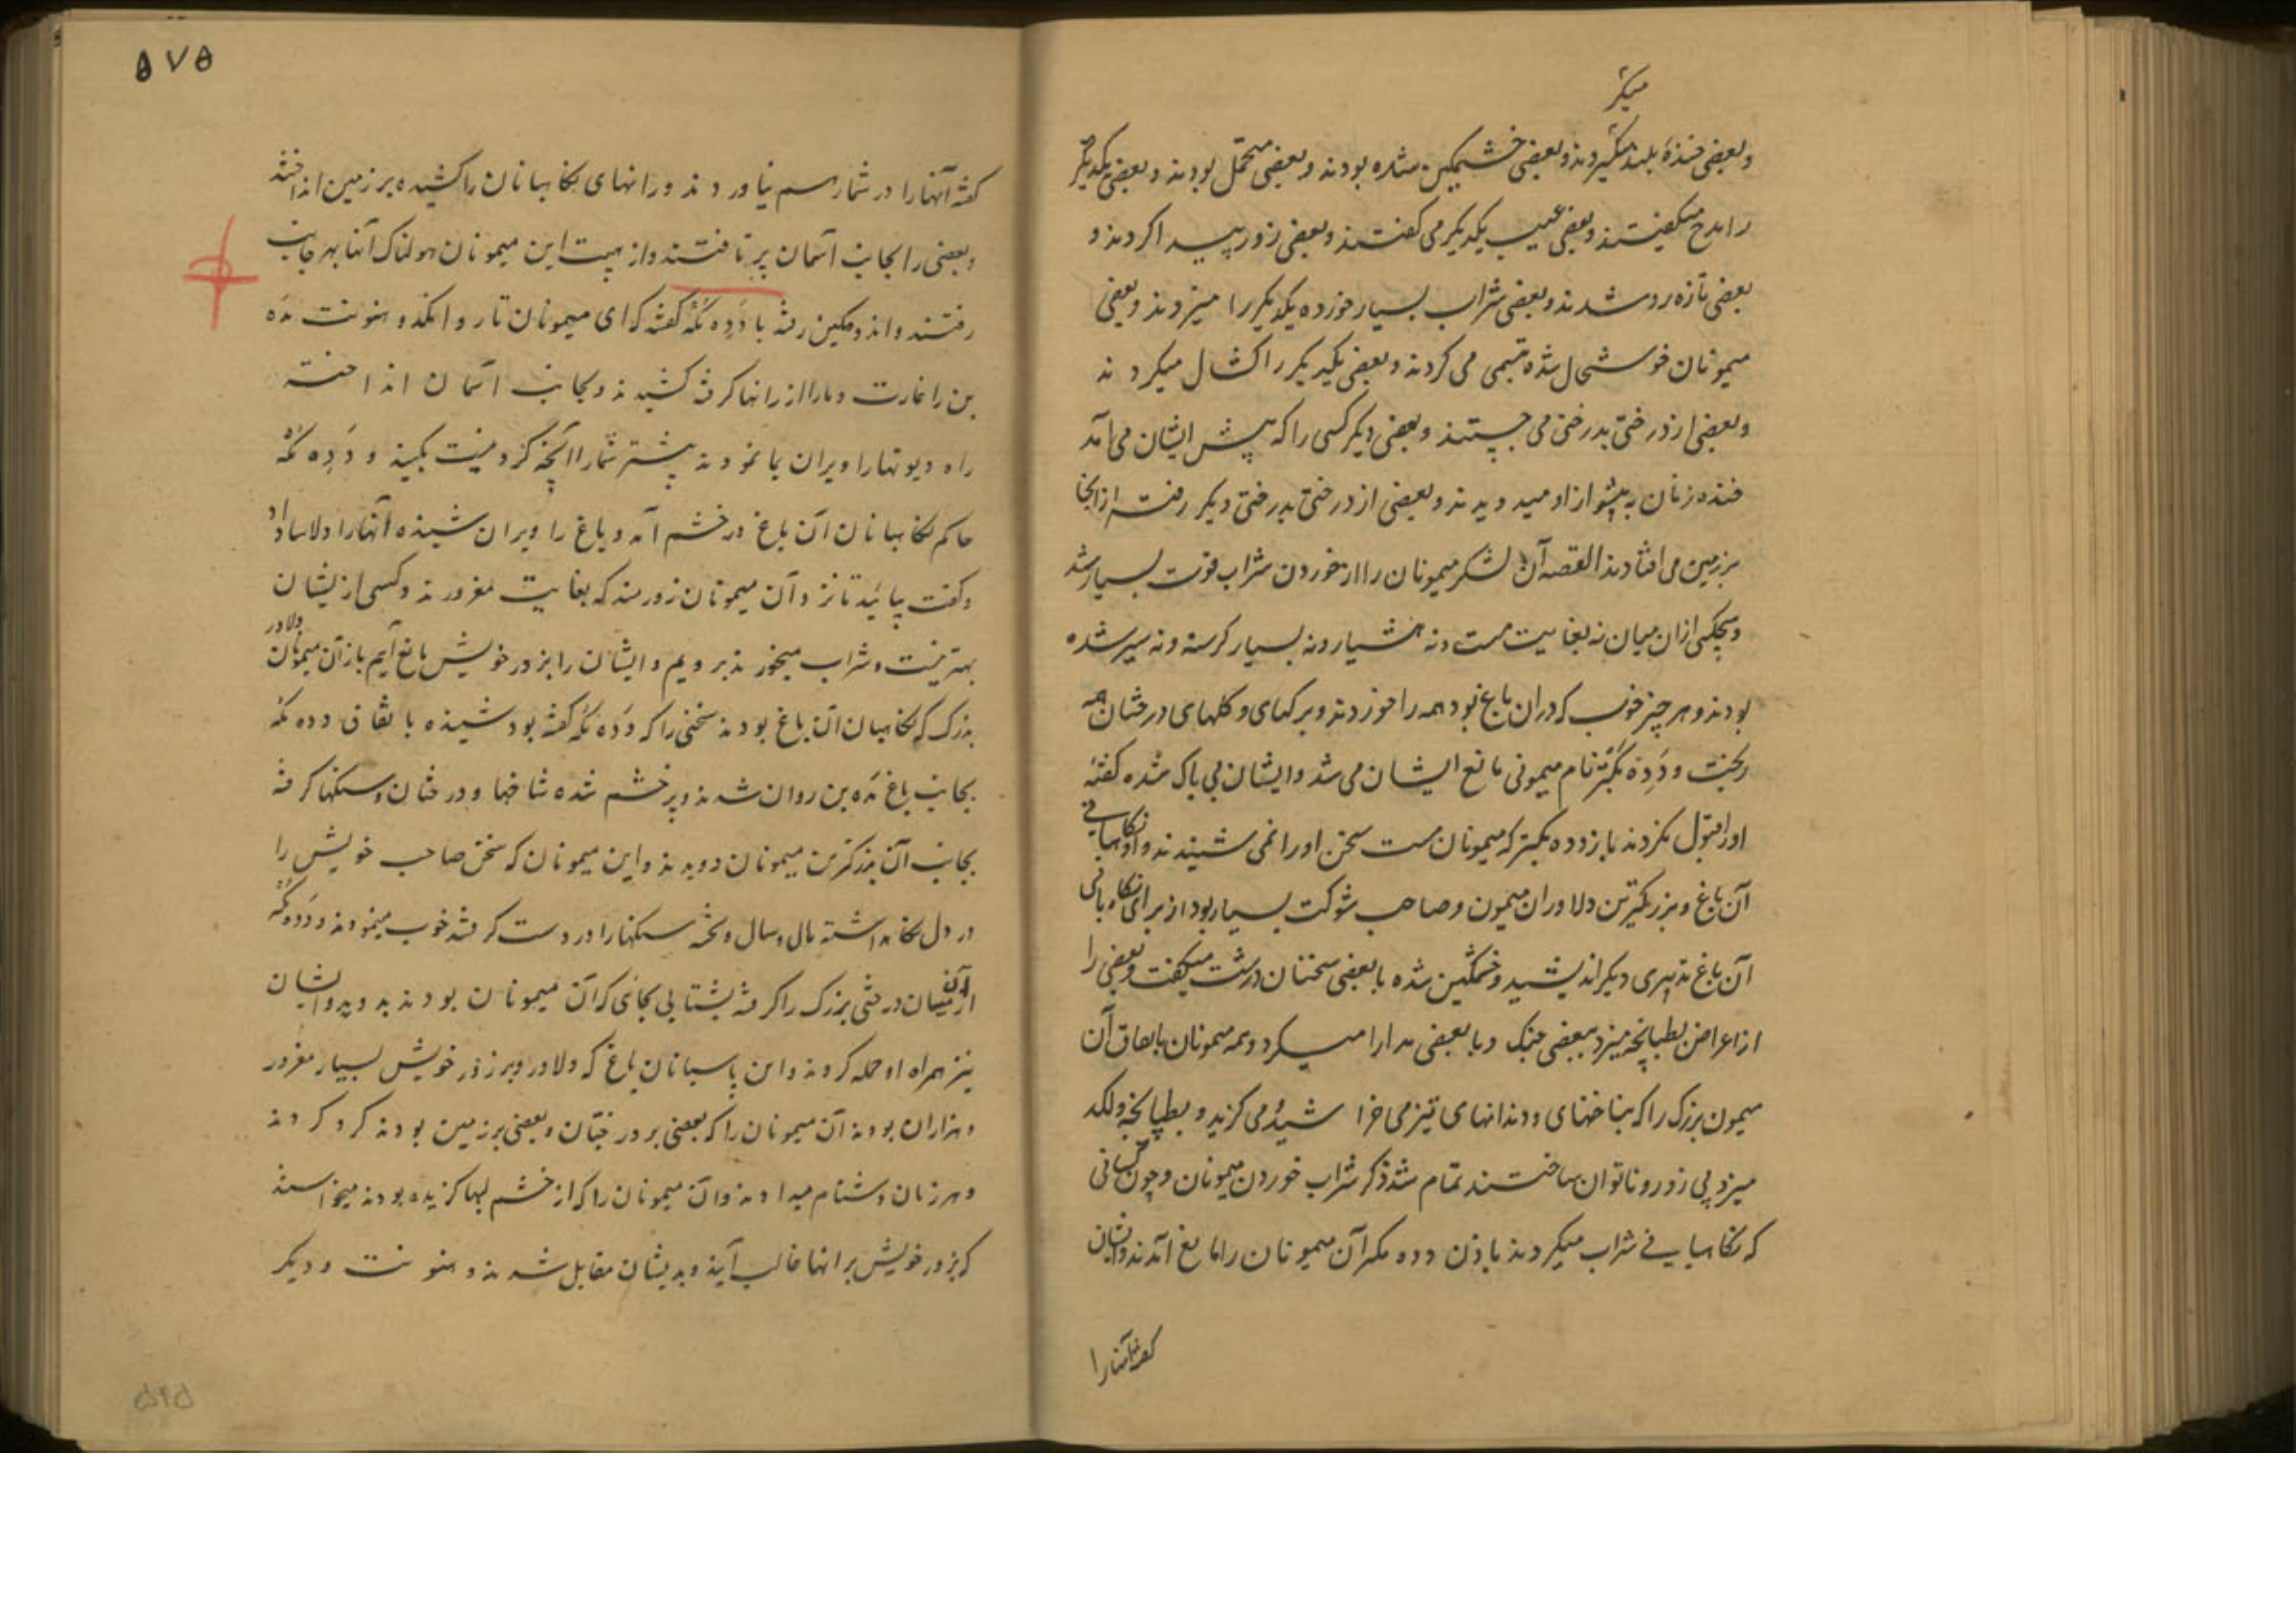 میکر
وبعضی خندهٔ بلند میکردند وبعضی خشمکین شده بودند وبعضی متحمل بودند وبعضی یکدیکر
را مدح میکفتند وبعضی عیب یکدیکر می کفتند وبعضی زور پیدا کردند و
بعضی تازه رو شدند وبعضی شراب بسیار خورده یکدیکر را میزدند وبعضی
میمونان خوشحال شده تبسمی می کردند وبعضی یکدیکر را کشال میکردند
وبعضی از درختی بدرختی می جستند وبعضی دیکر کسی را که پیش ایشان می آمد
خنده زنان به پیشواز او میدویدند وبعضی از درختی بدرختی دیکر رفته از انجا
برزمین می افتادند القصه آن لشکر میمونان را از خوردن شراب قوت بسیار شد
وهیچکس ازان میان نه بغایت مست ونه هشیار ونه بسیار کرسنه ونه سیر شده
بودند وهر چیز خوب که دران باغ بود همه را خوردند وبرکهای وکلهای درختان همه
ریخت ودَدِه مُکهه نام میمونی مانع ایشان می شد وایشان بی باک شده کفتهٔ
اورا قبول نکردند باز دده مکهه که میمونان مست سخن اورا نمی شنیدند واو نکاهبانی
آن باغ وبزرکترین دلاوران میمون وصاحب شوکت بسیار بود از برای نکاهبانی
آن باغ تدبیری دیکر اندیشید وخشمکین شده با بعضی سخنان درشت میکفت وبعضی را
از اعراض بطپانچه میزد ببعضی جنک وبا بعضی مدارا میکرد وهمه میمونان باتفاق آن
میمون بزرک را که بناخنهای ودندانهای تیز می خراشید ومی کزید وبطپانچه ولکد
میزد بی زور وناتوان ساختند تمام شد ذکر شراب خوردن میمونان وچون کسانی
که نکاهبانی شراب میکردند باذن دده مکهه آن میمونان را مانع آمدند وایشان
کفته آنها را
۵۷۵
کفته آنها را در شمار هم نیاوردند ورانهای نکاهبانان را کشیده برزمین انداختند
وبعضی را بجانب آسمان پرتافتند واز هیبت این میمونان هولناک آنها بهر جانب
رفتند واندوهکین رفته با دَدِه مُکهه کفتند که ای میمونان تار وانکد وهنونت مَده
بن را غارت ومارا از رانها کرفته کشیدند وبجانب آسمان انداختند
راه دیوتها را ویران بما نمودند پیشتر شمارا آنچه کردنیست بکنید ودَدِه مُکهه
حاکم نکاهبانان آن باغ در خشم آمد وباغ را ویران شنیده آنها را دلاسا داد
وکفت بیائید تا نزد آن میمونان زورمند که بغایت مغرورند وکسی از یشان
بهتر نیست وشراب میخورند برویم وایشان را بزور خویش مانع آیم باز آن میمونان دلاور
بزرک که نکاهبان آن باغ بودند سخنی را که دده مکهه کفته بود شنیده باتفاق دده مکهه
بجانب باغ مَده بن روان شدند وپر خشم شده شاخها ودرختان وسنکها کرفته
بجانب آن بزرکترین میمونان دویدند واین میمونان که سخن صاحب خویش را
در دل نکاهداشته تال وسال وتخته سنکها را در دست کرفته خوب مینمودند ودده مکهه
ازان میان درختی بزرک را کرفته بشتابی بجائی که آن میمونان بودند بدوید وایشان
نیز همراه او حمله کردند واین پاسبانان باغ که دلاور وبر زور خویش بسیار مغرور
وهزاران بودند آن میمونان را که بعضی بر درختان وبعضی برزمین بودند کرد کردند
وهر زمان دشنام میدادند وآن میمونان را که از خشم لبها کزیده بودند میخواستند
که بزور خویش برانها غالب آیند وبدیشان مقابل شدند وهنونت ودیکر